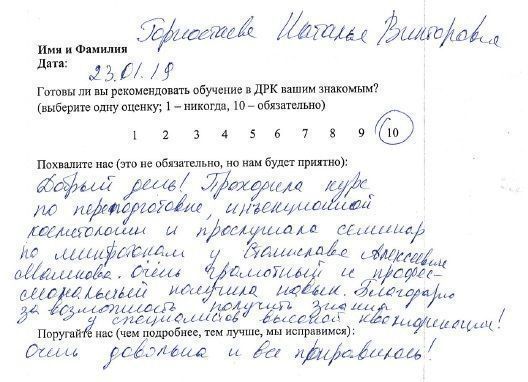 Горностаева Наталья Викторовна
Имя и Фамилия
Дата:
23.01.19
Готовы ли вы рекомендовать обучение в ДРК вашим знакомым?
(выберите одну оценку; 1 – никогда, 10 – обязательно)
1 2 3 4 5 6 7 8 9 10
Похвалите нас (это не обязательно, но нам будет приятно):
Добрый день! Проходила курс
по переподготовке, инъекционной
косметологии и прослушала семинар
по микротокам у Станислава Алексеевича
Маликова. Очень грамотный и профес-
сиональный получила навык. Благодарю
за возможность получить знания
у специалистов высокой квалификации!
Поругайте нас (чем подробнее, тем лучше, мы исправимся):
Очень довольна и все понравилось!